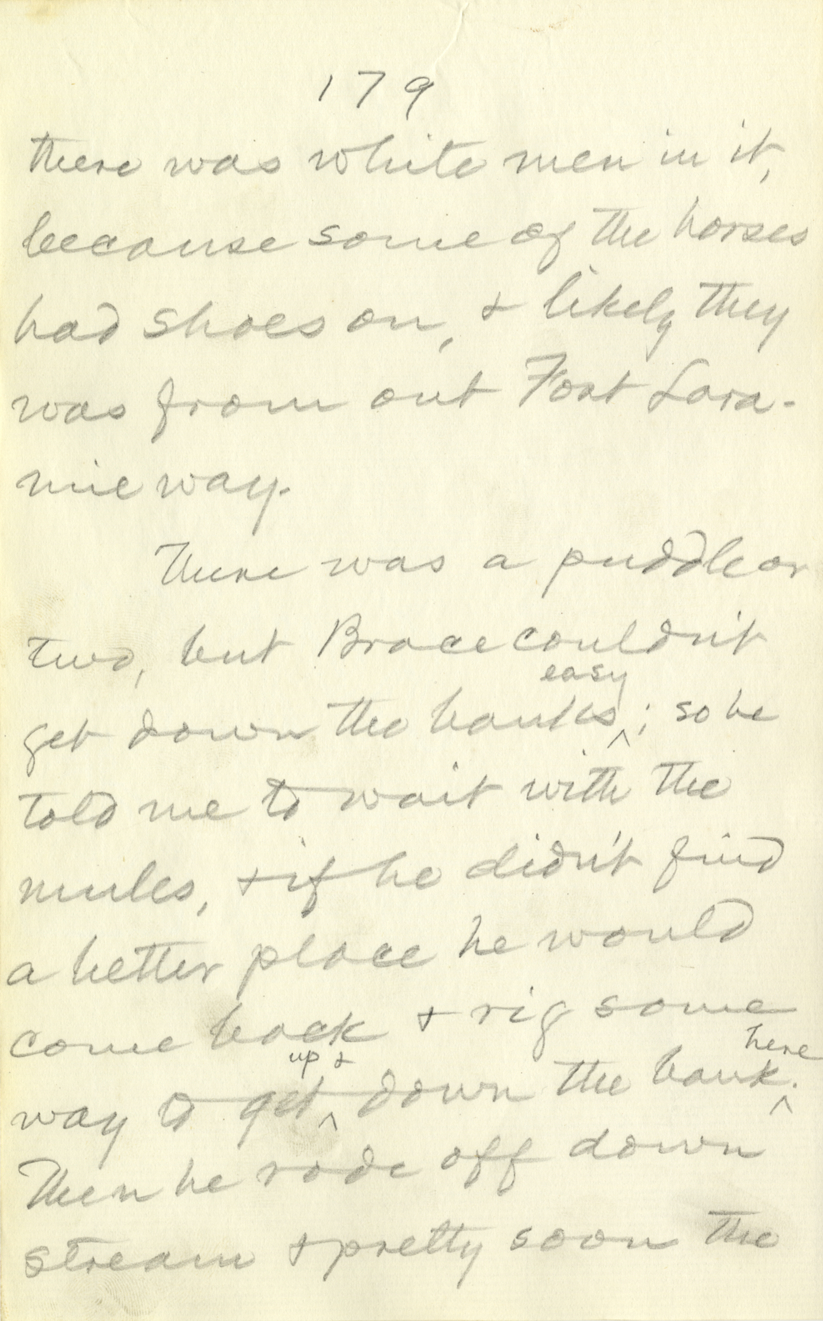 179
there was white men in it,
because some of the horses
had shoes on, & likely they
was from out Fort Lara-
mie way.
There was a puddle or
two, but Brace couldn't
easy
get down the banks ^; so he
told me to wait with the
mules, & if he didn't find
a better place he would
come back & rig some
up & here
way to get ^ down the bank ^.
Then he rode off down
stream & pretty soon the